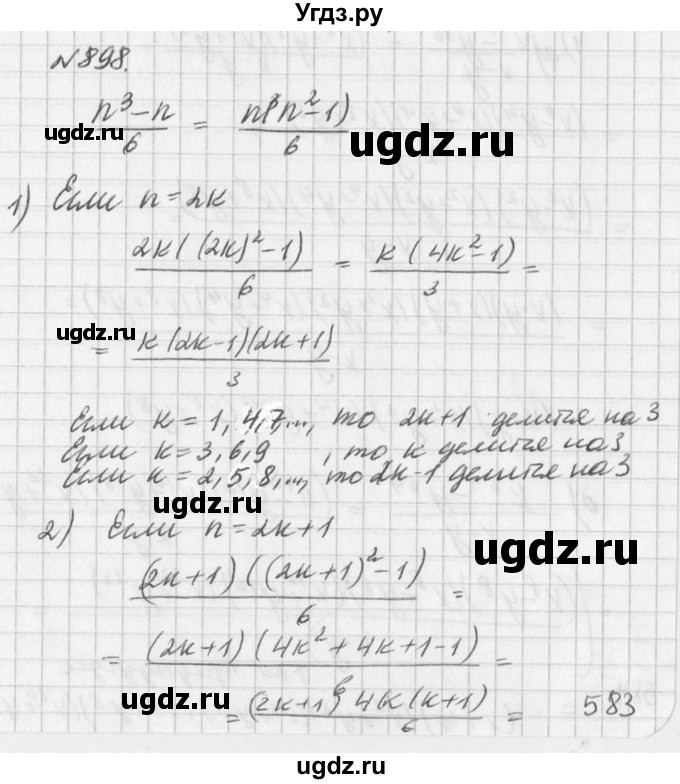 Угдз.ру
№898.
(n³-n)/6 = n(n²-1)/6
ugdz.ru
ugdz.ru
1) Если n=2k
2k((2k)²-1)/6 = k(4k²-1)/3 =
ugdz.ru
= k(2k-1)(2k+1)/3
Если k=1,4,7,..., то 2k+1 делится на 3
Если k=3,6,9 , то k делится на 3
Если k=2,5,8,..., то 2k-1 делится на 3
ugdz.ru
2) Если n=2k+1
ugdz.ru
(2k+1)((2k+1)²-1)/6 =
= (2k+1)(4k²+4k+1-1)/6 =
ugdz.ru
= (2k+1)4k(k+1)/6 =
583
ugdz.ru